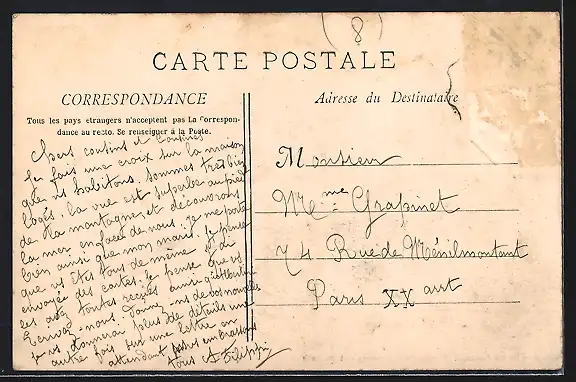 (8)
CARTE POSTALE
CORRESPONDANCE
Tous les pays etrangers n'acceptent pas La Correspon-
dance au recto. Se renseigner à la Poste.
Adresse du Destinataire
Chers cousins et Cousines
Je fais une croix sur la maison
que ns habitons. sommes très bien
logés. la vue est superbe au pied
de la montagne, et découvrons
la mer en face de nous. je me porte
bien ainsi que mon mari. je pense
que vs êtes tous de même. J'ai
envoyée des cartes. je pense que vs
les avez toutes reçues ainsi qu'
Ecrivez-nous. Donnez-ns de vos nouvelles
je vs donnerai plus de détails une
autre fois sur une lettre en
attendant vs embrassons
tous
Monsieur
Mme Grapinet
74 Rue de Ménilmontant
Paris XX art